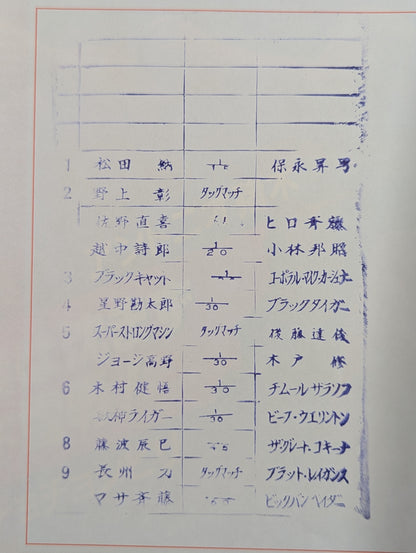 1 松田 納 保永昇男
2 野上 彰 タッグマッチ
佐野直喜 ヒロ斉藤
越中詩郎 1/20 小林邦昭
3 ブラックキャット コーポラル・マイク・カーシュナー
4 星野勘太郎 1/30 ブラックタイガー
5 スーパーストロングマシン タッグマッチ 後藤達俊
ジョージ高野 1/30 木戸 修
6 木村健悟 1/30 チムールザラソフ
獣神ライガー 1/30 ビーフ・ウエリントン
8 藤波辰巳 ザ・グレート・コキーナ
9 長州 力 タッグマッチ ブラット・レイガンス
マサ斉藤 ビッグバンベイダー